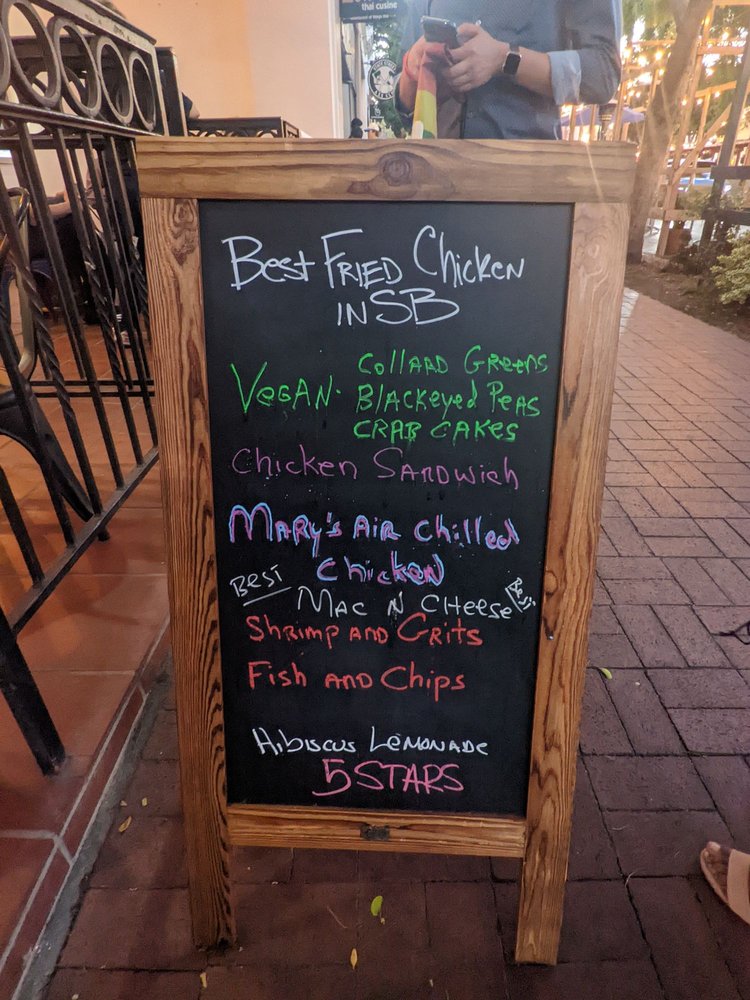 thai cusine
Best Fried Chicken
in SB
Vegan - Collard Greens
Blackeyed Peas
Crab Cakes
Chicken Sandwich
Mary's Air Chilled
Chicken
Best Mac N Cheese Best
Shrimp and Grits
Fish and Chips
Hibiscus Lemonade
5 Stars